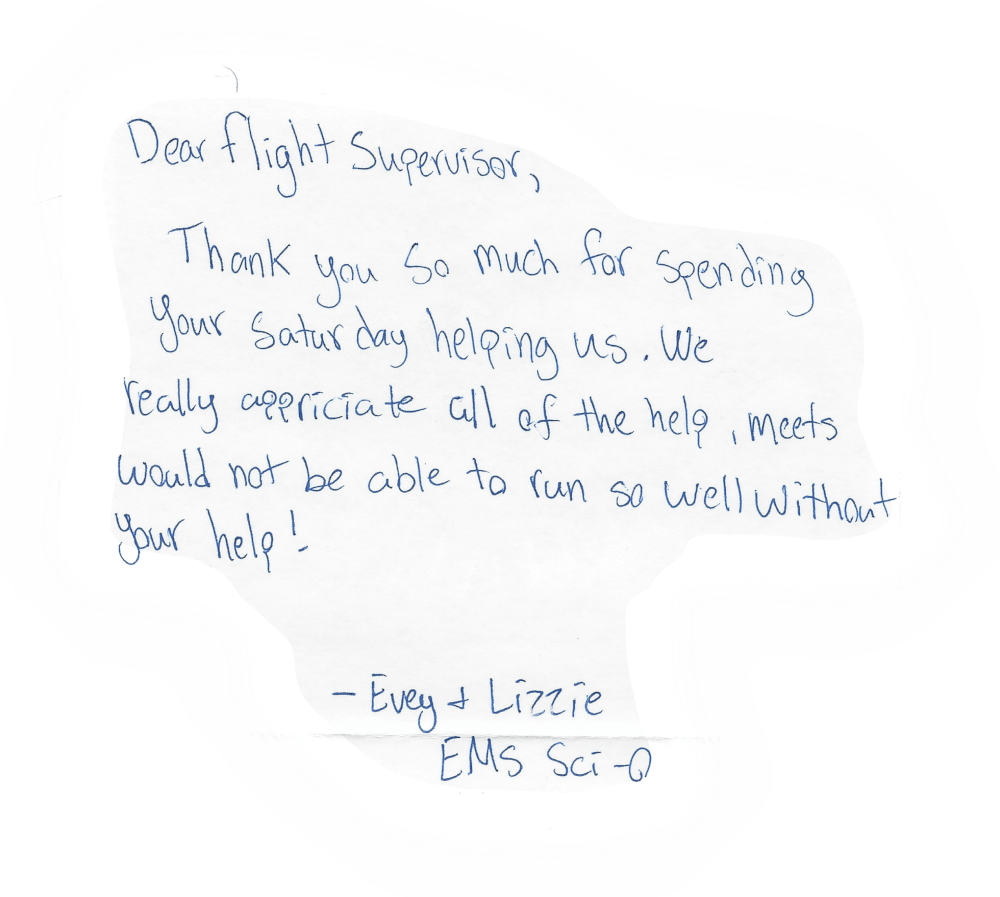 Dear flight Supervisor,
Thank you so much for spending
your Saturday helping us. We
really appriciate all of the help, meets
would not be able to run so well without
your help!
- Evey + Lizzie
EMS Sci-O